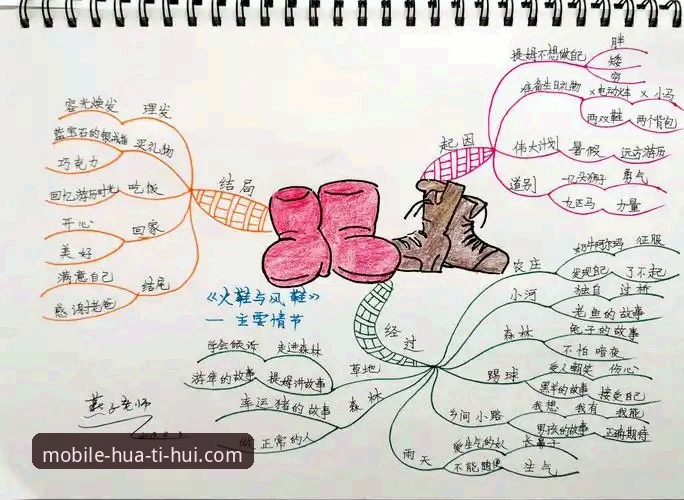 《火鞋与风鞋》
— 主要情节
起因
提姆不想做自己
胖
矮
穷
准备生日礼物
×电动火车 × 小马
两双鞋 两个背包
伟大计划 暑假 远方游历
道别
勇气
九匹马 力量
经过
农庄
征服
发现自己 了不起
小河
独自 过桥
老鱼的故事
森林
兔子的故事
不怕暗夜
踢球
受人嘲笑 伤心
黑羊的故事 接受自己
乡间小路
我想 我有 我能
男孩的故事 正确期待
雨天
长鼻子
不能随便 生气
草地
学会倾诉 走进森林
提姆讲故事
森林
幸运猪的故事
做正常的人
结局
理发
容光焕发
买礼物
蓝宝石的银戒指
巧克力
吃饭
回忆游历时光
回家
开心
美好
结尾
满意自己
感谢老爸
燕子老师
mobile-hua-ti-hui.com